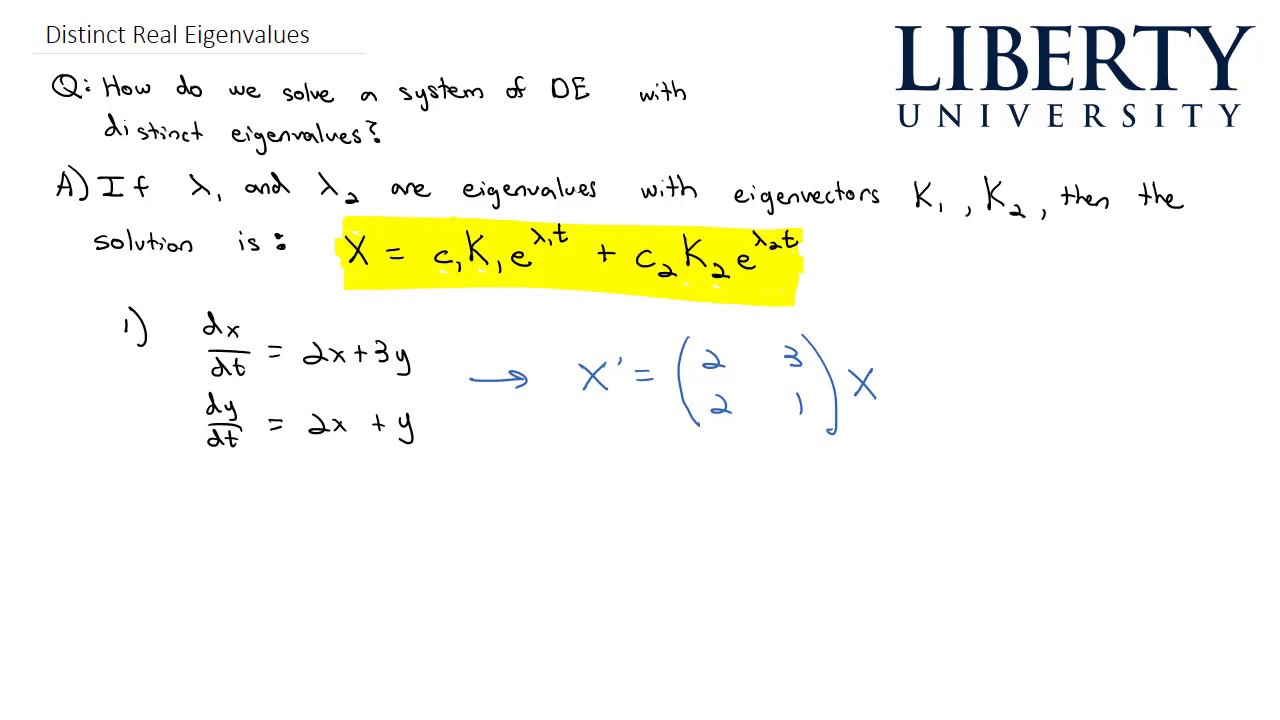 Distinct Real Eigenvalues
LIBERTY
UNIVERSITY
Q: How do we solve a system of DE with
distinct eigenvalues?
A) If λ₁ and λ₂ are eigenvalues with eigenvectors K₁, K₂, then the
solution is: X = c₁K₁e^(λ₁t) + c₂K₂e^(λ₂t)
1) dx/dt = 2x+3y → X' = (2 3
dy/dt = 2x + y 2 1) X